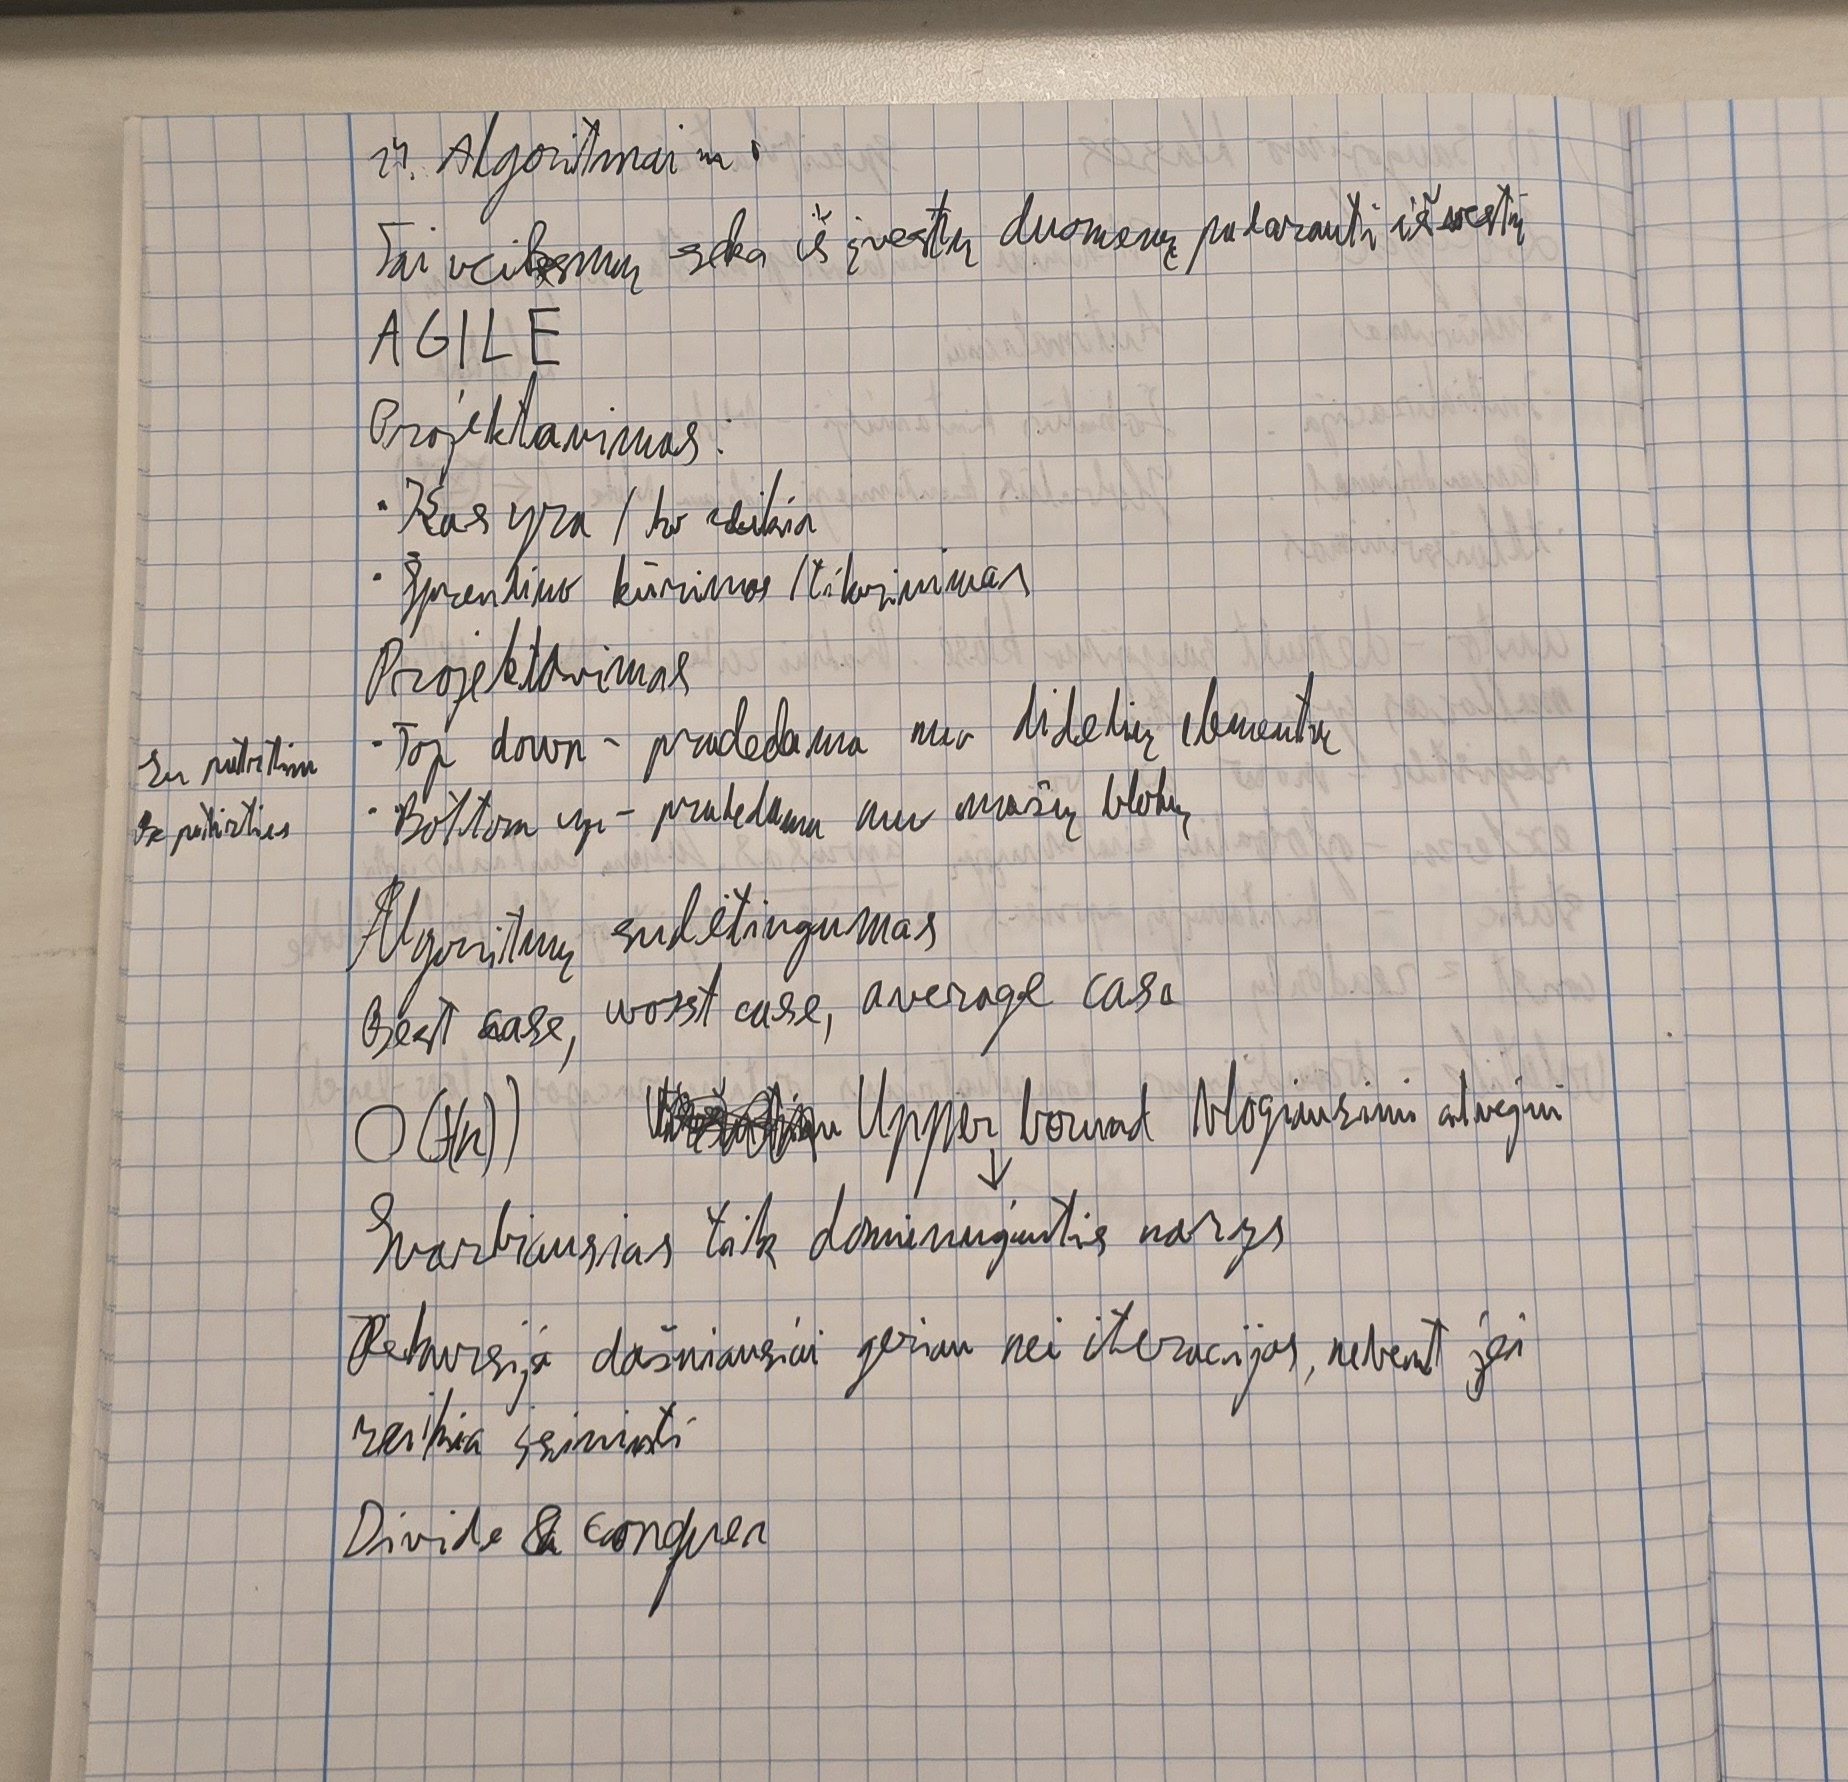 Algoritmai
Tai veiksmų seka iš įvestų duomenų padaranti išvestį
AGILE
Projektavimas:
· Kas yra / ko reikia
· Sprendimo kūrimas / tikrinimas
Projektavimas
· Top down - pradedama nuo didelių elementų
Su patirtim
· Bottom up - pradedama nuo mažų blokų
Be patirties
Algoritmų sudėtingumas
Best case, worst case, average case
O(f(n)) Upper bound blogiausiu atveju
↓
Svarbiausias tik dominuojantis narys
Rekursija dažniausiai geriau nei iteracijos, nebent jei
reikia
Divide & conquer